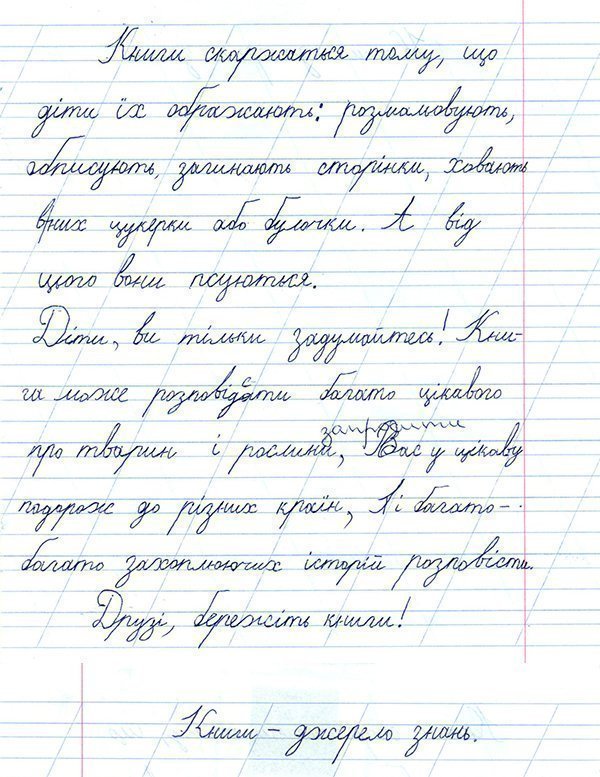 Книги скаржаться тому, що
діти їх ображають: розмальовують,
обписують, загинають сторінки, ховають
в них цукерки або булочки. А від
цього вони псуються.
Діти, ви тільки задумайтесь! Кни-
га може розповідати багато цікавого
запросити
про тварин і рослини, Вас у цікаву
подорож до різних країн, і багато-
багато захоплюючих історій розповісти.
Друзі, бережіть книги!
Книги – джерело знань.